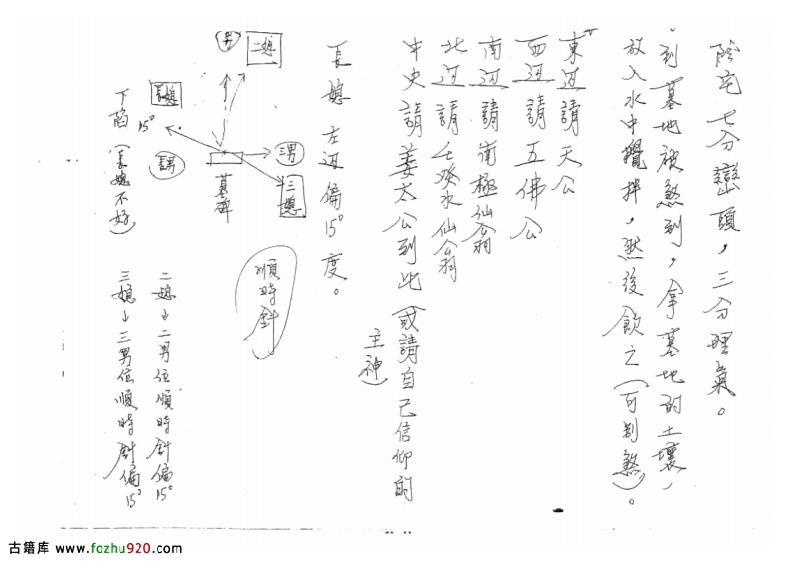 陰宅七分巒頭，三分理氣。
到墓地被煞到，拿墓地的土壤，
放入水中攪拌，然後飲之（可制煞）。
東邊請天公
西邊請五佛公
南邊請南極仙翁
北邊請壬癸水仙翁
中央請姜太公到此（或請自己信仰的
主神）
長媳左邊偏15°度。
順時針
男
二媳
長媳
15°
長男
三男
三媳
墓碑
下陷（長媳不好）
二媳↓二男位順時針偏15°
三媳↓三男位順時針偏15°
古籍库 www.fozhu920.com